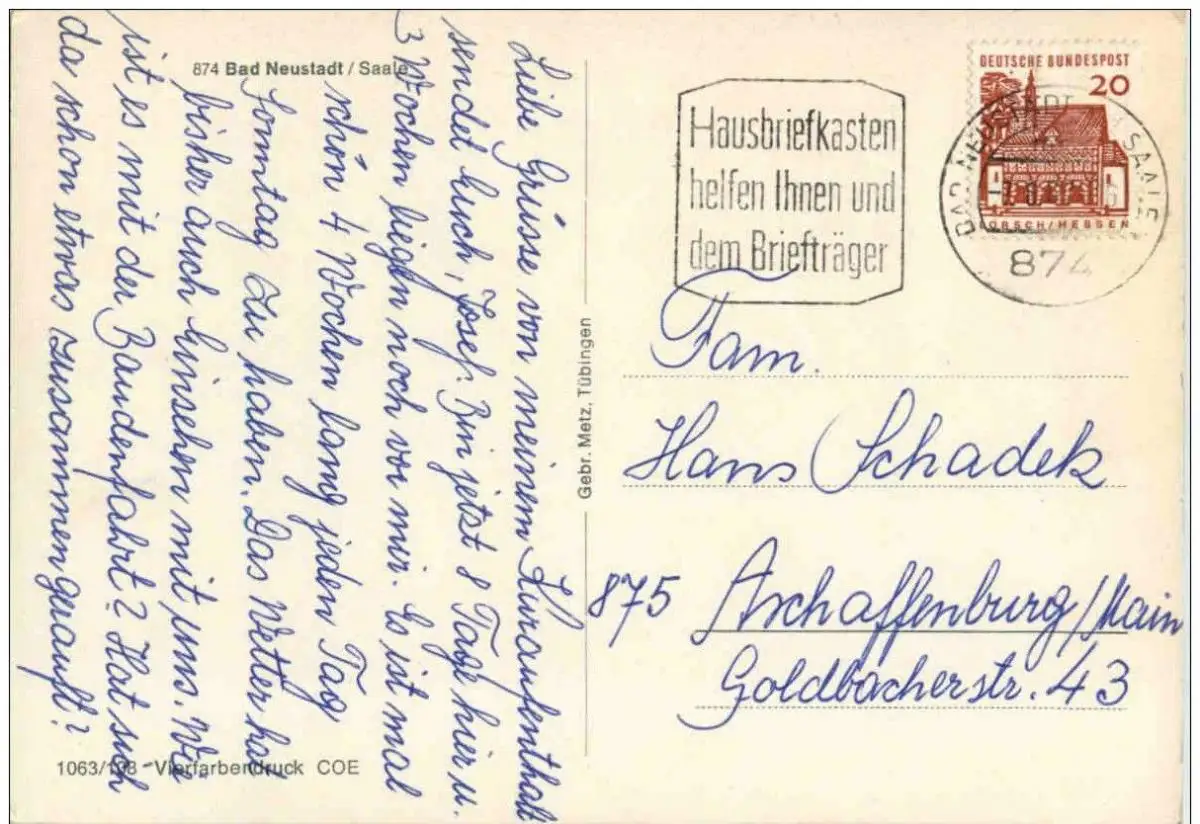 874 Bad Neustadt / Saale
Liebe Grüsse von meinem Kuraufenthalt
sendet Euch, Josef. Bin jetzt 8 Tage hier u.
3 Wochen liegen noch vor mir. Es ist mal
schön 4 Wochen lang jeden Tag
Sonntag zu haben. Das Wetter hat
bisher auch Einsehen mit uns. Wie
ist es mit der Baudenfahrt? Hat sich
da schon etwas zusammengerauft?
1063/108 Vierfarbendruck COE
Gebr. Metz, Tübingen
Hausbriefkasten
helfen Ihnen und
dem Briefträger
DEUTSCHE BUNDESPOST
20
LORSCH/HESSEN
BAD NEUSTADT SAALE
874
Fam.
Hans Schadek
875 Aschaffenburg/Main
Goldbacherstr. 43